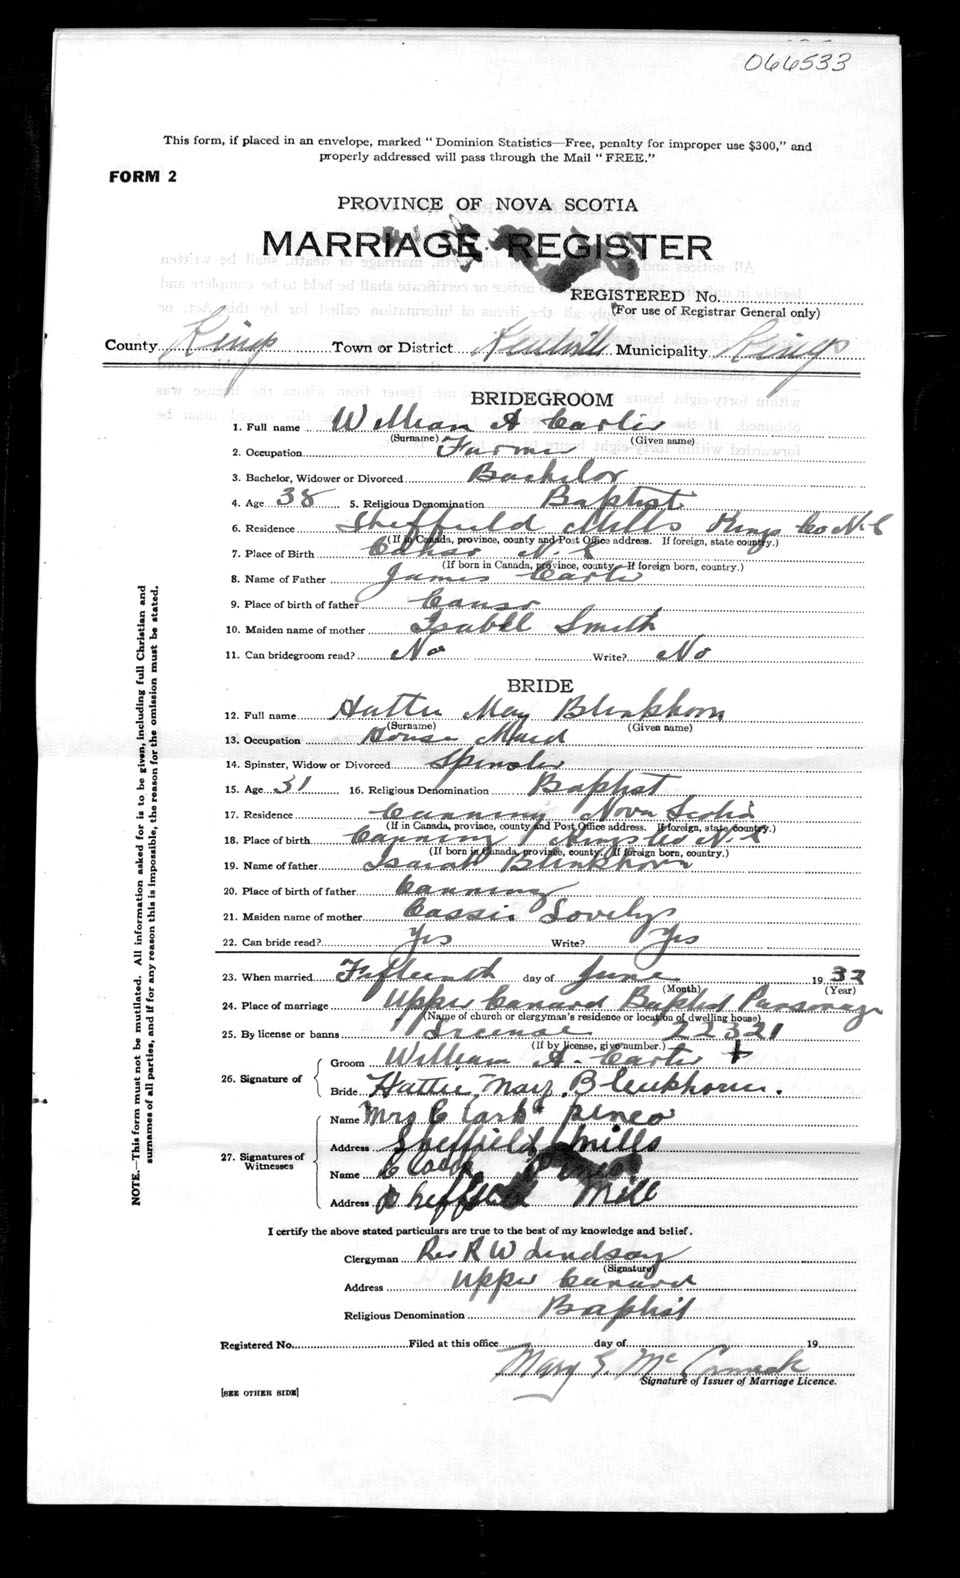 066533
This form, if placed in an envelope, marked "Dominion Statistics—Free, penalty for improper use $300," and
properly addressed will pass through the Mail "FREE."
FORM 2
PROVINCE OF NOVA SCOTIA
MARRIAGE REGISTER
REGISTERED No.
(For use of Registrar General only)
County Kings Town or District Kentville Municipality Kings
BRIDEGROOM
1. Full name William A Carter
(Surname) (Given name)
2. Occupation Farmer
3. Bachelor, Widower or Divorced Bachelor
4. Age 38 5. Religious Denomination Baptist
6. Residence Sheffield Mills Kings Co N.S
(If in Canada, province, county and Post Office address. If foreign, state country.)
7. Place of Birth Canso N.S
(If born in Canada, province, county. If foreign born, country.)
8. Name of Father James Carter
9. Place of birth of father Canso
10. Maiden name of mother Isabell Smith
11. Can bridegroom read? No Write? No
BRIDE
12. Full name Hattie May Blenkhorn
(Surname) (Given name)
13. Occupation House Maid
14. Spinster, Widow or Divorced Spinster
15. Age 31 16. Religious Denomination Baptist
17. Residence Canning Nova Scotia
(If in Canada, province, county and Post Office address. If foreign, state country.)
18. Place of birth Canning Kings Co N.S
(If born in Canada, province, county. If foreign born, country.)
19. Name of father Isaiah Blenkhorn
20. Place of birth of father Canning
21. Maiden name of mother Cassie Lovelys
22. Can bride read? Yes Write? Yes
23. When married Fifteenth day of June 1932
(Month) (Year)
24. Place of marriage Upper Canard Baptist Parsonage
(Name of church or clergyman's residence or location of dwelling house)
25. By license or banns License 22321
(If by license, give number.)
26. Signature of Groom William A. Carter +
Bride Hattie May Blenkhorn.
27. Signatures of Witnesses
Name Mrs Clark Pineo
Address Sheffield Mills
Name Clark Pineo
Address Sheffield Mill
I certify the above stated particulars are true to the best of my knowledge and belief.
Clergyman Rev R W Lindsay
(Signature)
Address Upper Canard
Religious Denomination Baptist
Registered No. Filed at this office day of 19
Mary E. McCormack
Signature of Issuer of Marriage Licence.
[SEE OTHER SIDE]
NOTE.—This form must not be mutilated. All information asked for is to be given, including full Christian and
surnames of all parties, and if for any reason this is impossible, the reason for the omission must be stated.